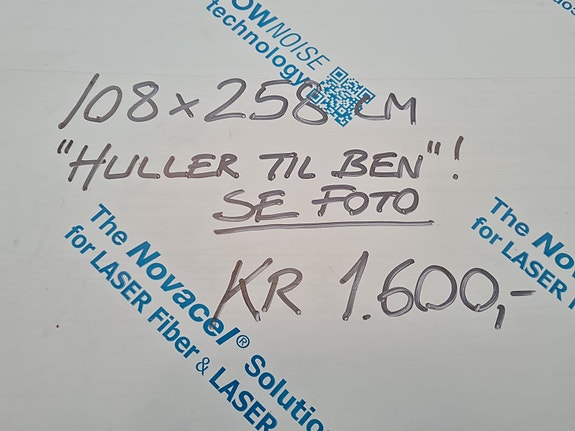 OWNOISE
technology
108 x 258 CM
"HULLER TIL BEN"!
SE FOTO
KR 1.600,-
The Novacel® Solution
for LASER Fiber & LASER
The Nov
for LASER